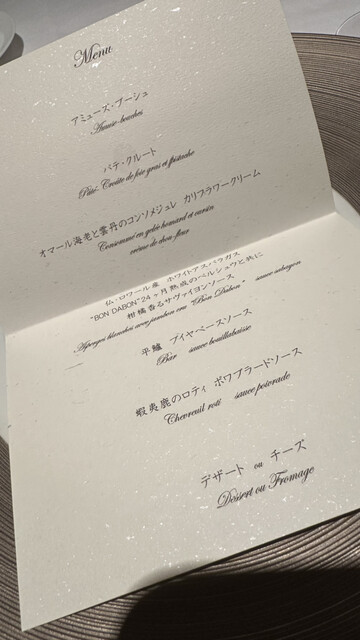 Menu
アミューズ・ブーシュ
Amuse-bouches
パテ・クルート
Pâté-Croûte de foie gras et pistache
オマール海老と雲丹のコンソメジュレ カリフラワークリーム
Consommé en gelée homard et oursin
crème de chou-fleur
仏・ロワール産 ホワイトアスパラガス
"BON DABON"24ヶ月熟成のペルシュウと共に
柑橘香るサヴァイヨンソース
Asperges blanches avec jambon cru "Bon Dabon" sauce sabayon
平鱸 ブイヤベースソース
Bar sauce bouillabaisse
蝦夷鹿のロティ ポワブラードソース
Chevreuil roti sauce poivrade
デザート ou チーズ
Dessert ou Fromage